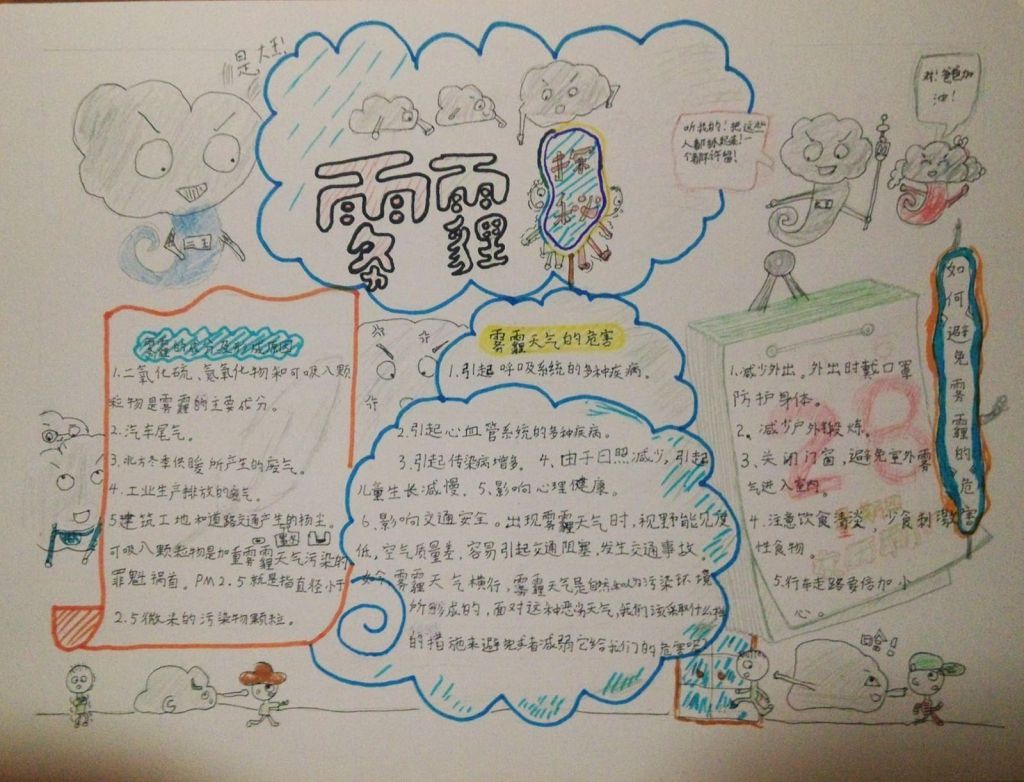 是，大王！
雾霾
探秘
听我的！把这些
人都抓起来！一
个都不许留！
对！爸爸加
油！
二王
雾霾的成气及形成原因
1.二氧化硫、氮氧化物和可吸入颗
粒物是雾霾的主要成分。
2.汽车尾气。
3.北方冬季供暖所产生的废气。
4.工业生产排放的废气。
5建筑工地和道路交通产生的扬尘。
可吸入颗粒物是加重雾霾天气污染的
罪魁祸首。PM2.5就是指直径小于
2.5微米的污染物颗粒。
雾霾天气的危害
1.引起呼吸系统的多种疾病。
2.引起心血管系统的多种疾病。
3.引起传染病增多。 4、由于日照减少，引起
儿童生长减慢。5、影响心理健康。
6.影响交通安全。出现雾霾天气时，视野能见度
低，空气质量差，容易引起交通阻塞，发生交通事故。
如今雾霾天气横行，雾霾天气是自然和人为污染环境
所形成的，面对这种恶劣天气，我们该采取什么样
的措施来避免或者减弱它给我们的危害呢
如何避免雾霾的危害
1.减少外出。外出时戴口罩
防护身体。
2。减少户外锻炼。
3、关闭门窗，避免室外雾
气进入室内。
4、注意饮食清淡，少食刺激
性食物。
5.行车走路要倍加小
心。
28
哈！